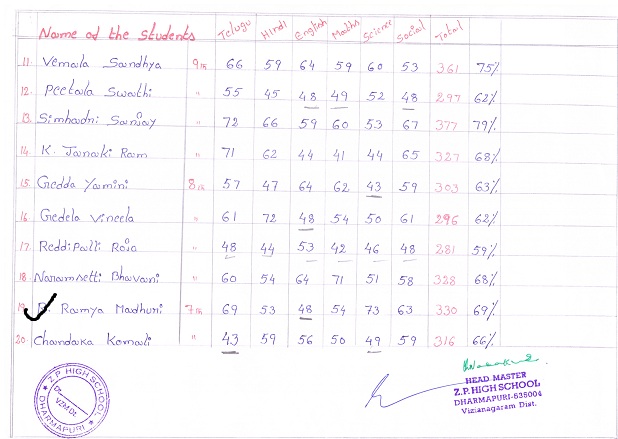 Name of the Students Telugu Hindi English Maths Science Social Total
11. Vemala Sandhya 9th 66 59 64 59 60 53 361 75%
12. Peetala Swathi " 55 45 48 49 52 48 297 62%
13. Simhadri Sanjay " 72 66 59 60 53 67 377 79%
14. K. Janaki Ram " 71 62 44 41 44 65 327 68%
15. Gedda Yamini 8th 57 47 64 62 43 59 303 63%
16. Gedela Vineela " 61 72 48 54 50 61 296 62%
17. Reddipalli Roja " 48 44 53 42 46 48 281 59%
18. Naramsetti Bhavani " 60 54 64 71 51 58 328 68%
19. Ramya Madhuri 7th 69 53 48 54 73 63 330 69%
20. Chandaka Kamali " 43 59 56 50 49 59 316 66%
Z.P. HIGH SCHOOL
Dt.
VZM Dt.
DHARMAPURI
HEAD MASTER
Z.P. HIGH SCHOOL
DHARMAPURI-535004
Vizianagaram Dist.